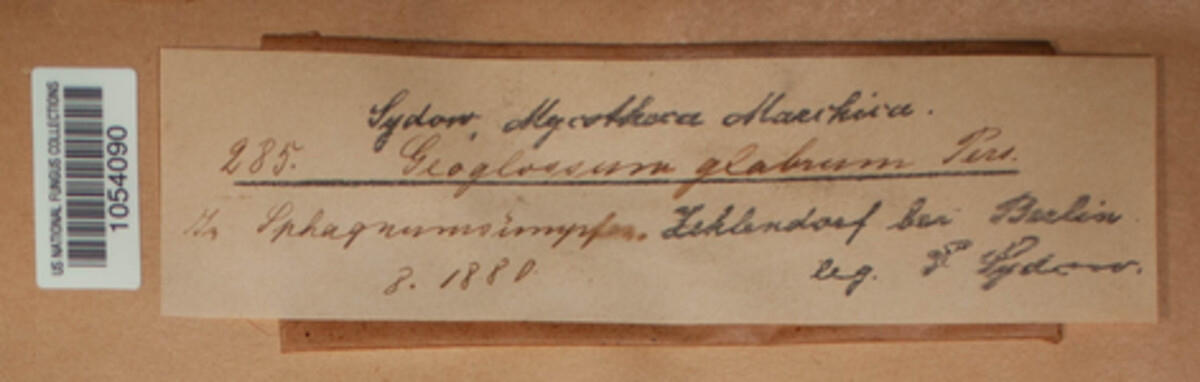 US NATIONAL FUNGUS COLLECTIONS
1054090
Sydow, Mycotheca Marchica.
285. Geoglossum glabrum Pers.
In Sphagnumsümpfen. Zehlendorf bei Berlin
8. 1880 leg. P Sydow.